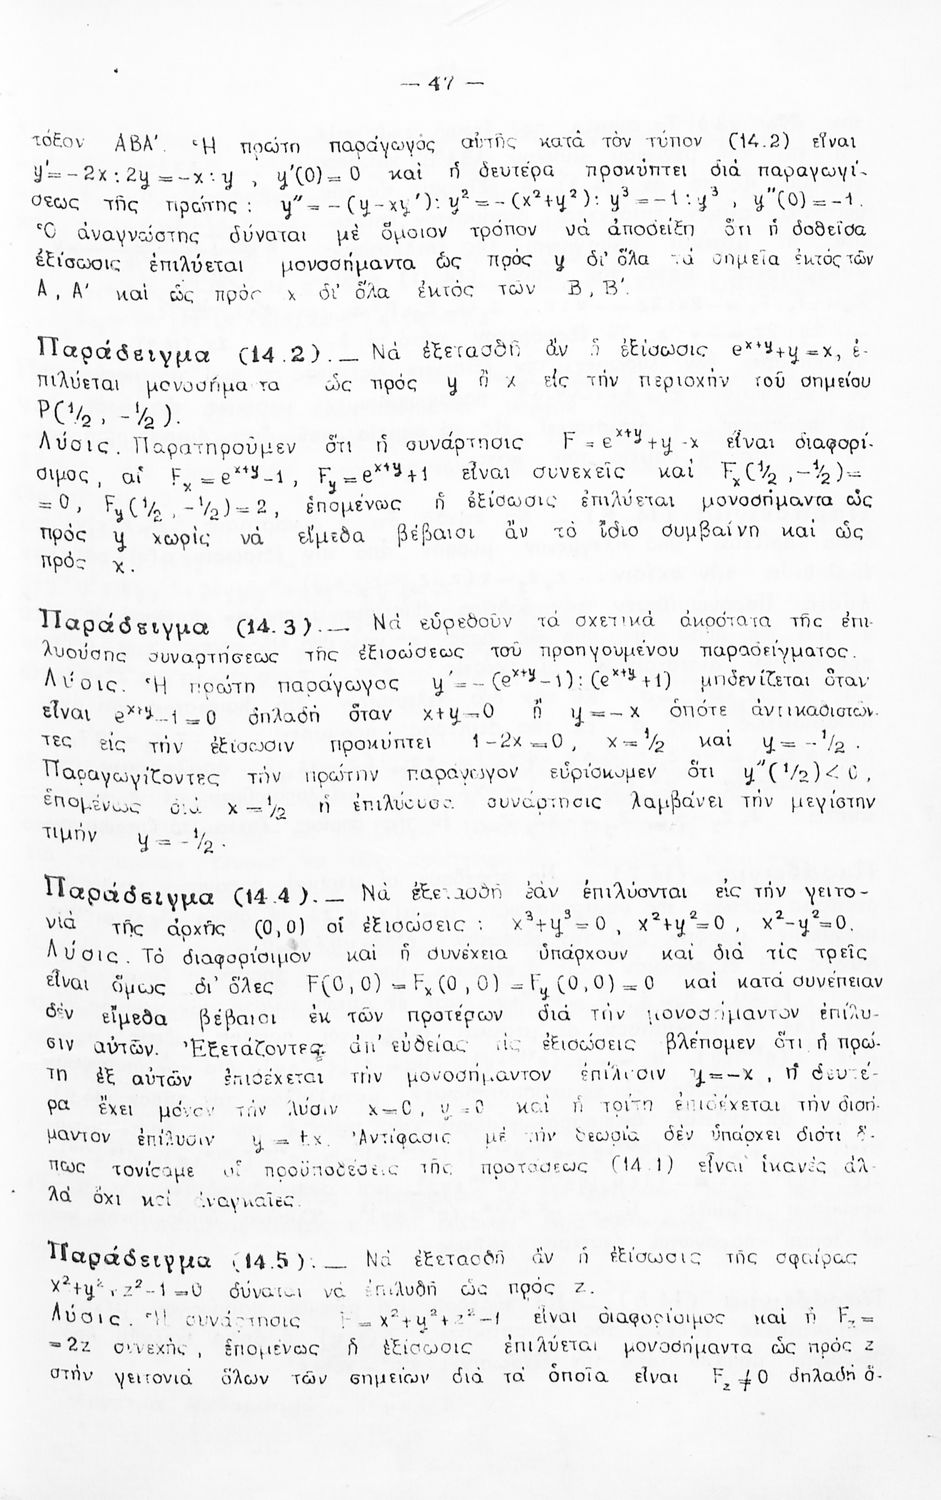 — 47 —
τόξον ΑΒΑ'. Ἡ πρώτη παράγωγός αὐτῆς κατά τόν τύπον (14.2) εἶναι
y'=-2x:2y=-x:y , y'(0)=0 καί ἡ δευτέρα προκύπτει διά παραγωγί-
σεως τῆς πρώτης : y"=-(y-xy'):y²=-(x²+y²):y³=-1:y³ , y"(0)=-1.
Ὁ ἀναγνώστης δύναται μέ ὅμοιον τρόπον νά ἀποδείξη ὅτι ἡ δοθεῖσα
ἐξίσωσις ἐπιλύεται μονοσήμαντα ὡς πρός y δι' ὅλα τά σημεῖα ἐκτός τῶν
Α, Α' καί ὡς πρός x δι' ὅλα ἐκτός τῶν Β, Β'.
Παράδειγμα (14.2).— Νά ἐξετασθῆ ἄν ἡ ἐξίσωσις eˣ⁺ʸ+y=x, ἐ-
πιλύεται μονοσήμαντα ὡς πρός y ἤ x εἰς τήν περιοχήν τοῦ σημείου
P(1/2, -1/2).
Λύσις. Παρατηροῦμεν ὅτι ἡ συνάρτησις F=eˣ⁺ʸ+y-x εἶναι διαφορί-
σιμος, αἱ Fₓ=eˣ⁺ʸ-1, F_y=eˣ⁺ʸ+1 εἶναι συνεχεῖς καί Fₓ(1/2,-1/2)=
=0, F_y(1/2,-1/2)=2, ἑπομένως ἡ ἐξίσωσις ἐπιλύεται μονοσήμαντα ὡς
πρός y χωρίς νά εἴμεθα βέβαιοι ἄν τό ἴδιο συμβαίνη καί ὡς
πρός x.
Παράδειγμα (14.3).— Νά εὑρεθοῦν τά σχετικά ἀκρότατα τῆς ἐπι-
λυούσης συναρτήσεως τῆς ἐξισώσεως τοῦ προηγουμένου παραδείγματος.
Λύσις. Ἡ πρώτη παράγωγος y'=-(eˣ⁺ʸ-1):(eˣ⁺ʸ+1) μηδενίζεται ὅταν
εἶναι eˣ⁺ʸ-1=0 δηλαδή ὅταν x+y=0 ἤ y=-x ὁπότε ἀντικαθιστών-
τες εἰς τήν ἐξίσωσιν προκύπτει 1-2x=0, x=1/2 καί y=-1/2.
Παραγωγίζοντες τήν πρώτην παράγωγον εὑρίσκομεν ὅτι y"(1/2)<0,
ἑπομένως διά x=1/2 ἡ ἐπιλύουσα συνάρτησις λαμβάνει τήν μεγίστην
τιμήν y=-1/2.
Παράδειγμα (14.4).— Νά ἐξετασθῆ ἐάν ἐπιλύονται εἰς τήν γειτο-
νιά τῆς ἀρχῆς (0,0) οἱ ἐξισώσεις : x³+y³=0, x²+y²=0, x²-y²=0.
Λύσις. Τό διαφορίσιμον καί ἡ συνέχεια ὑπάρχουν καί διά τίς τρεῖς
εἶναι ὅμως δι' ὅλες F(0,0)=Fₓ(0,0)=F_y(0,0)=0 καί κατά συνέπειαν
δέν εἴμεθα βέβαιοι ἐκ τῶν προτέρων διά τήν μονοσήμαντον ἐπίλυ-
σιν αὐτῶν. Ἐξετάζοντες ἀπ' εὐθείας τίς ἐξισώσεις βλέπομεν ὅτι ἡ πρώ-
τη ἐξ αὐτῶν ἐπιδέχεται τήν μονοσήμαντον ἐπίλυσιν y=-x, ἡ δευτέ-
ρα ἔχει μόνον τήν λύσιν x=0, y=0 καί ἡ τρίτη ἐπιδέχεται τήν δισή-
μαντον ἐπίλυσιν y=±x. Ἀντίφασις μέ τήν θεωρία δέν ὑπάρχει διότι ὅ-
πως τονίσαμε οἱ προϋποθέσεις τῆς προτάσεως (14.1) εἶναι ἱκανές ἀλ-
λά ὄχι καί ἀναγκαῖες.
Παράδειγμα (14.5).— Νά ἐξετασθῆ ἄν ἡ ἐξίσωσις τῆς σφαίρας
x²+y²+z²-1=0 δύναται νά ἐπιλυθῆ ὡς πρός z.
Λύσις. Ἡ συνάρτησις F=x²+y²+z²-1 εἶναι διαφορίσιμος καί ἡ F_z=
=2z συνεχής, ἑπομένως ἡ ἐξίσωσις ἐπιλύεται μονοσήμαντα ὡς πρός z
στήν γειτονιά ὅλων τῶν σημείων διά τά ὁποῖα εἶναι F_z≠0 δηλαδή ὅ-